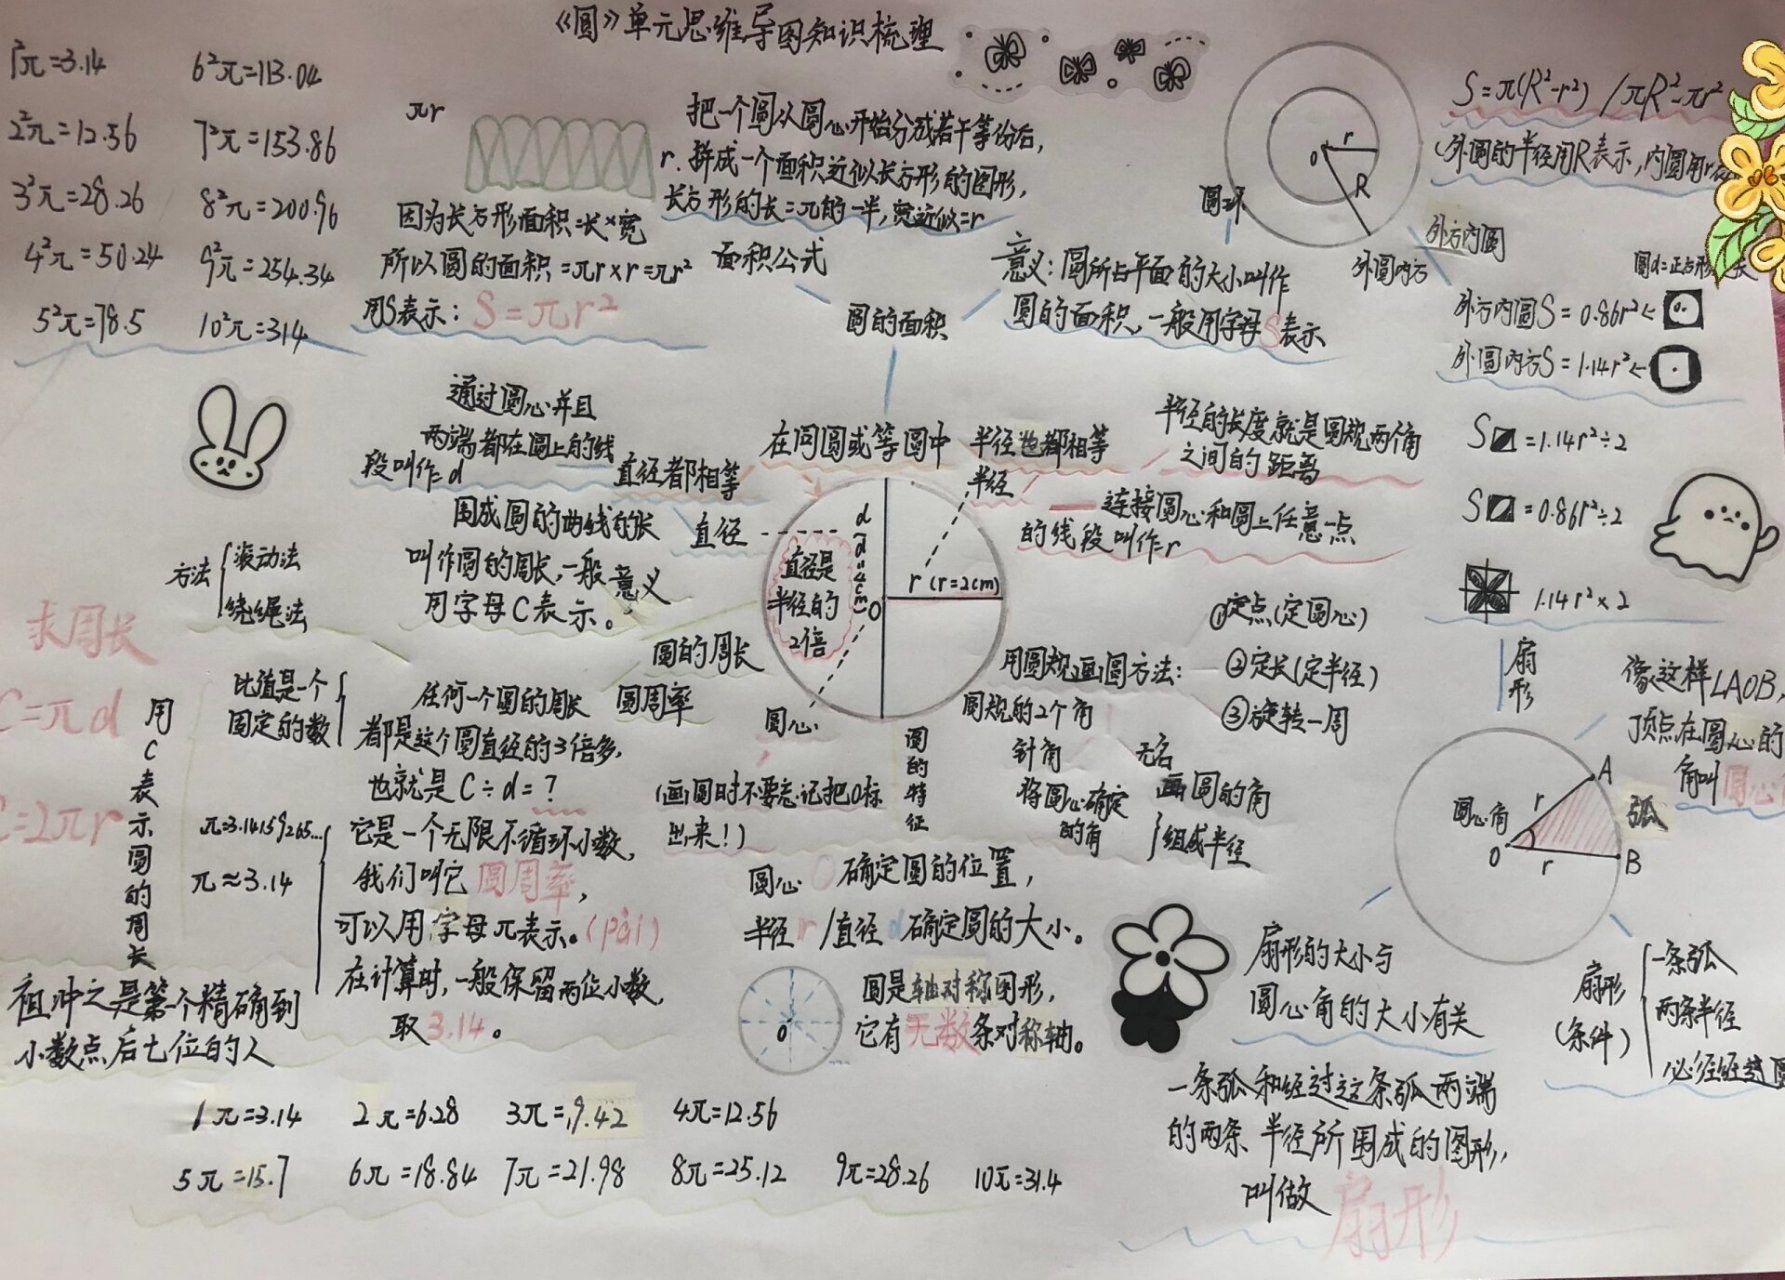 《圆》单元思维导图知识梳理
1²π=3.14
6²π=113.04
2²π=12.56
7²π=153.86
3²π=28.26
8²π=200.96
4²π=50.24
9²π=254.34
5²π=78.5
10²π=314
πr
r
把一个圆从圆心开始分成若干等份后,
拼成一个面积近似长方形的图形,
长方形的长=π的一半,宽近似=r
因为长方形面积=长×宽
所以圆的面积=πr×r=πr²
用S表示:S=πr²
面积公式
圆的面积
意义:圆所占平面的大小叫作
圆的面积,一般用字母S表示
圆环
r
O
R
S=π(R²-r²) /πR²-πr²
外圆的半径用R表示,内圆用r
外方内圆
外圆内方
圆d=正方形
外方内圆S=0.86r²
外圆内方S=1.14r²
S =1.14r²÷2
S =0.86r²÷2
1.14r²×2
通过圆心并且
两端都在圆上的线
段叫作d
直径都相等
在同圆或等圆中
半径也都相等
半径
半径的长度就是圆规两个角
之间的距离
连接圆心和圆上任意一点
的线段叫作r
直径
d
(d=4cm)
直径是
半径的
2倍
O
r(r=2cm)
圆心
围成圆的曲线的长
叫作圆的周长,一般
用字母C表示。
意义
方法
滚动法
绕绳法
求周长
C=πd
C=2πr
用C表示圆的周长
圆的周长
圆周率
比值是一个
固定的数
任何一个圆的周长
都是这个圆直径的3倍多,
也就是C÷d=?
π=3.14159265...
π≈3.14
它是一个无限不循环小数,
我们叫它圆周率,
可以用字母π表示。(pài)
在计算时,一般保留两位小数,
取3.14。
祖冲之是第一个精确到
小数点后七位的人
(画圆时不要忘记把O标
出来!)
圆的特征
用圆规画圆方法:
①定点(定圆心)
②定长(定半径)
③旋转一周
圆规的2个角
针角
将圆心确定
的角
无名
画圆的角
组成半径
圆心O确定圆的位置,
半径r/直径d确定圆的大小。
O
圆是轴对称图形,
它有无数条对称轴。
扇形
像这样∠AOB,
顶点在圆心的
角叫圆心
圆心角
O
r
r
A
B
弧
扇形的大小与
圆心角的大小有关
扇形
(条件)
一条弧
两条半径
必须经过圆
一条弧和经过这条弧两端
的两条半径所围成的图形,
叫做
扇形
1π=3.14
2π=6.28
3π=9.42
4π=12.56
5π=15.7
6π=18.84
7π=21.98
8π=25.12
9π=28.26
10π=31.4